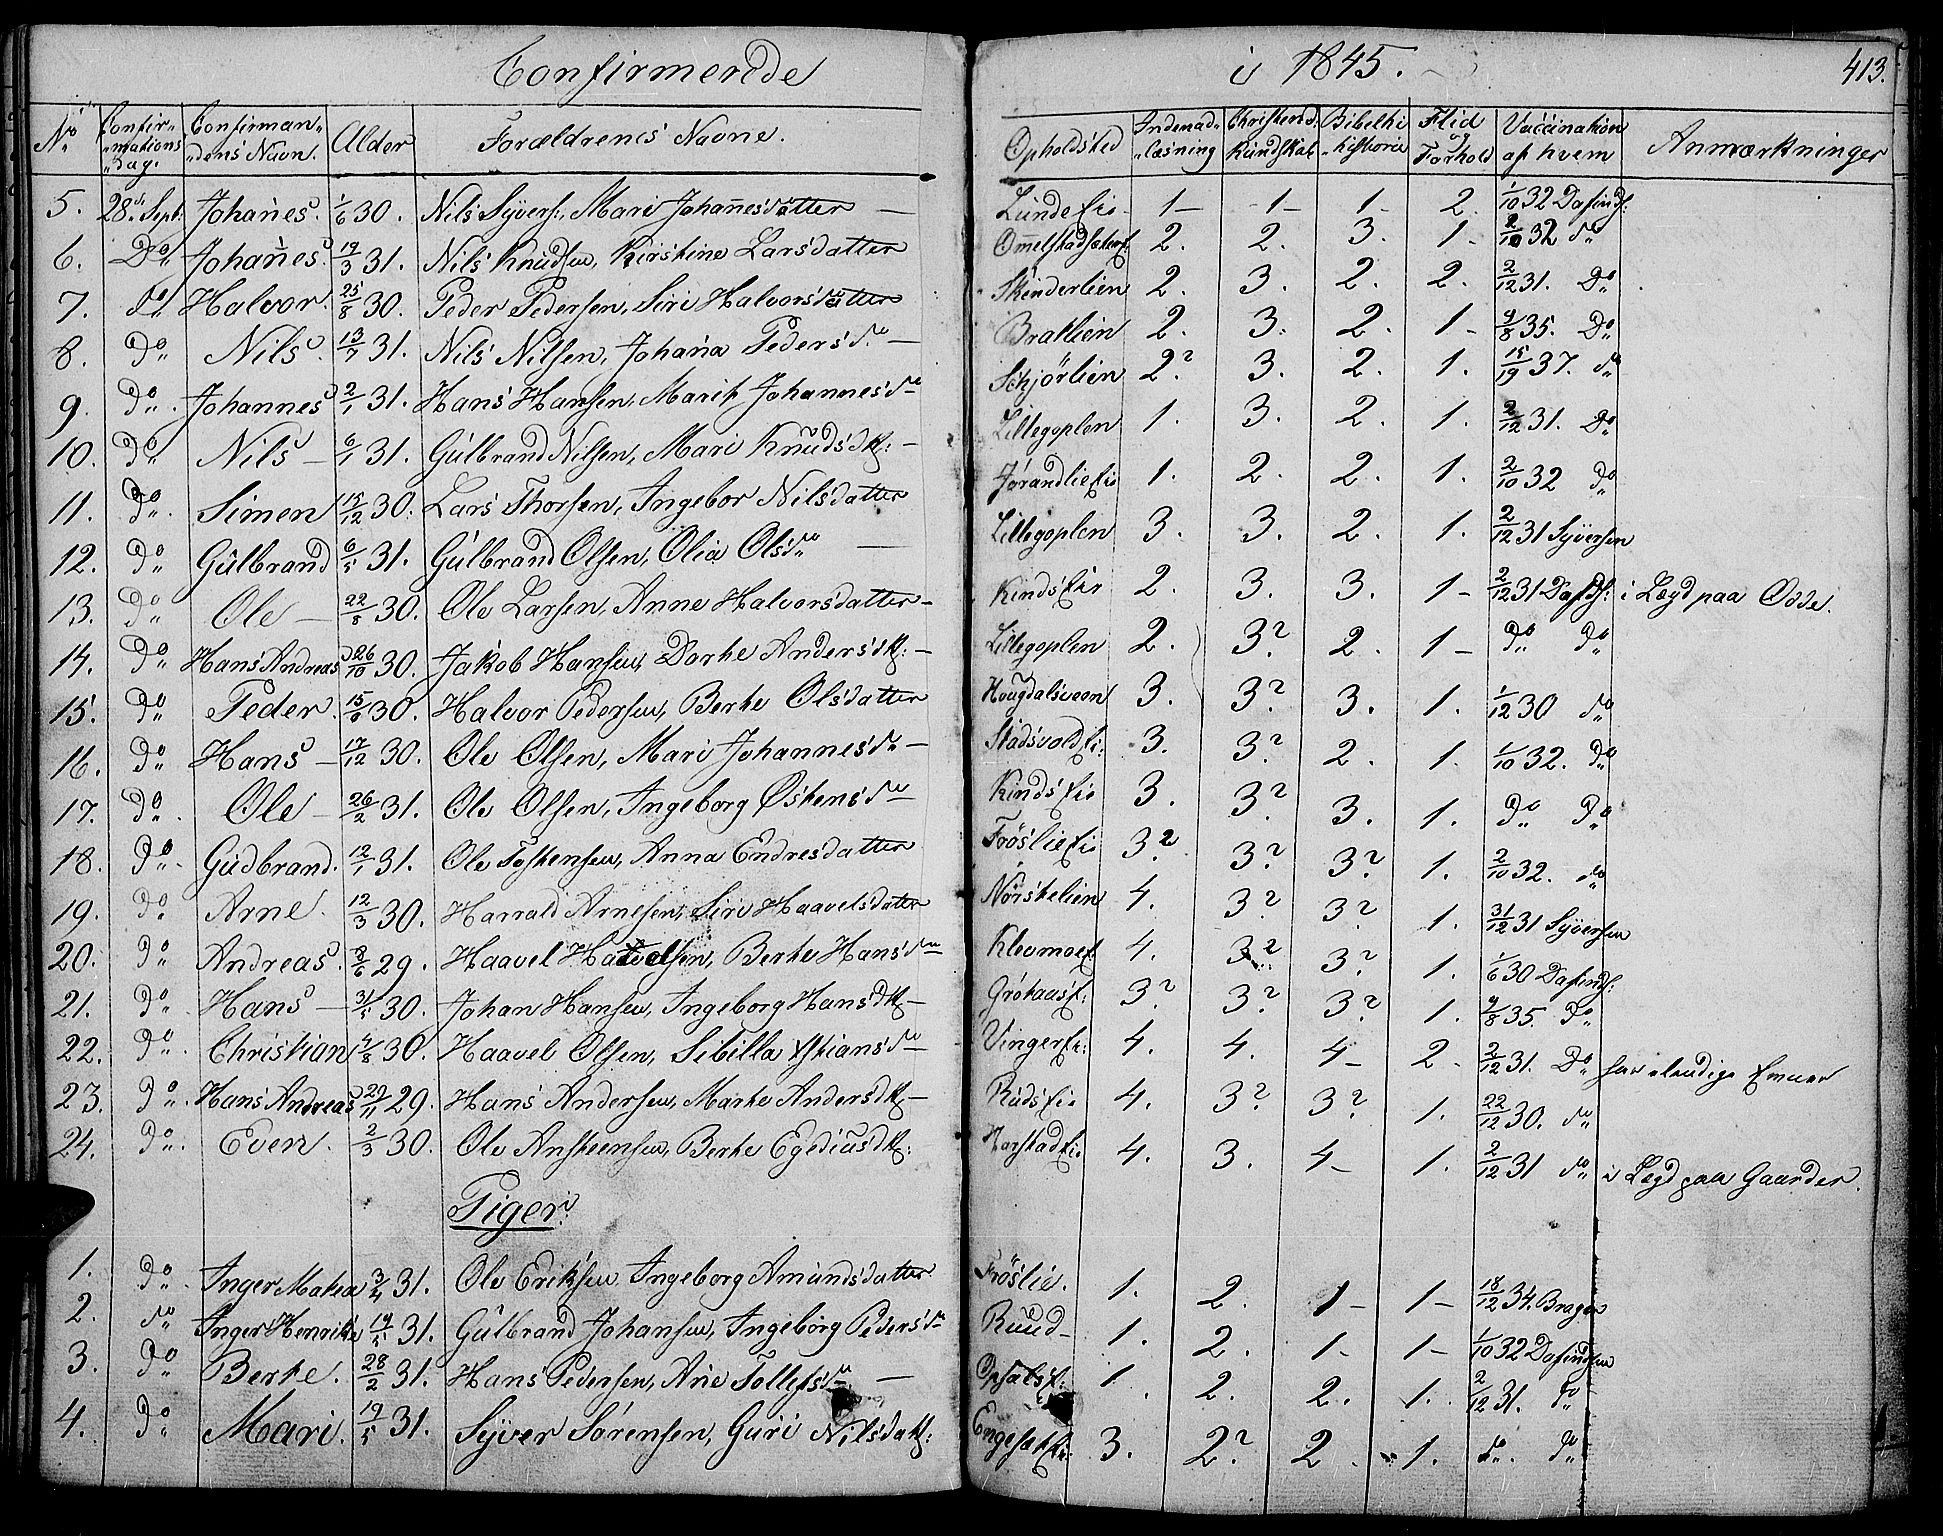 Confirmerede i 1845. 413.
No Confir- mations dag. Confirman- dens Navn. Alder Forældrenes Navne. Opholdsted Indenad- læsning Christend. Kundskab Bibelhi- storie Flid og Forhold Vaccination af hvem Anmærkninger
5. 28de Sept: Johañes. 1/6 30. Nils Syvers:, Mari Johañesdatter — Lunde Eie 1 — 1 — 1 — 2. 1/10 32 Dafinds:
6. Do Johañes. 19/3 31. Nils Knudsen, Kirstine Larsdatter 2. 2. 3. 1 - 2/10 32 do
7. do Halvor. 25/8 30. Peder Pedersen, Siri Halvorsdatter Skinderlien 2. 3. 2. 2. 2/12 31. Do
8. Do Nils. 13/7 31. Nils Nilsen, Johaña Pedersdr — Bratlien 2. 3. 2. 1 - 9/8 35. Do
9. Do Johannes 2/1 31. Hans Hansen, Marit Johannesdr Schjörlien 2? 3. 2. 1. 15/19 37. do
10. do Nils — 6/1 31. Gulbrand Nilsen, Mari Knudsdtr: — Lillegoplen 1. 3. 2. 1. 2/12 31. Do
11. Do Simen 15/12 30. Lars Thorsen, Ingebor Nilsdatter Jørandlie Eie 1. 2. 2. 1. 2/10 32 Do
12. do Gulbrand 6/5 31. Gulbrand Olsen, Olia Olsdr — Lillegoplen 3. 3. 2. 1. 2/12 31 Syversen
13. do Ole — 22/8 30. Ole Larsen, Anne Halvorsdatter — Kinds Eie 2. 3. 3. 1 - 2/12 31 Dafids: i Lægd paa Odde.
14. do Hans Andreas 26/10 30. Jakob Hansen, Dorte Andersdtr: — Lillegoplen 2. 3? 2. 1 - do do
15. do Peder. 15/6 30. Halvor Pedersen, Berte Olsdatter Hougdalsveen 3. 3? 3. 1. 1/12 30 do
16. do Hans — 17/12 30. Ole Olsen, Mari Johannesdr — Stadsvold Ei: 3. 3? 2. 1. 1/10 32. do
17. do Ole — 26/2 31. Ole Olsen, Ingeborg Østensdr Kinds Eie 3. 3? 3. 1. do do
18. do Gudbrand. 12/1 31. Ole Tostensen, Anna Endresdatter Fröslie Eie 3? 3? 3? 1. 2/10 32. do
19. do Arne. 12/3 30. Harrald Arnesen, Siri Haavelsdatter Nørstelien 4. 3? 3? 1. 31/12 31 Syversen
20. do Andreas. 8/6 29. Haavel Berte Hansdr Klevmoe E 4. 3? 3? 1. 1/6 30 Dafinds:
21. do Hans — 31/1 30. Johan Hansen, Ingeborg Hansdtr — Gröthaas E: 3? 3? 3? 1. 9/8 35. do
22. do Christian 4/8 30. Haavel Olsen, Sibilla Xstiansdr Vinger Ei: 4. 4. 4 - 2. 2/12 31. Do har elendige Evner
23. do Hans Andreas 29/11 29. Hans Andersen, Marte Andersdtr — Ruds Eie 4. 3? 3? 1. 22/12 30. do
24. do Even. 2/3 30. Ole Ansteensen, Berte Egediusdtr: Harstad Eie 4. 3. 4 - 1. 2/12 31 do i Lægd paa Gaarder.
Piger:
1. do Inger Mathea 3/4 31. Ole Eriksen, Ingeborg Amundsdatter Fröslie. 1. 2. 1 - 1 - 18/12 34. Brager
2. do Inger Henrike 19/5 31. Gulbrand Johansen, Ingeborg Pedersdr Ruud — 1. 2. 1 - 1 - 1/10 32 Dafindsen
3. do Berte. 28/2 31. Hans Pedersen, Ane Tollefsdr — Opsals E: 1. 2. 2. 1. 2/12 31. do
4. do Mari. 19/5 31. Syver Sørensen, Guri Nilsdattr: 3. 2? 2. 1. do do